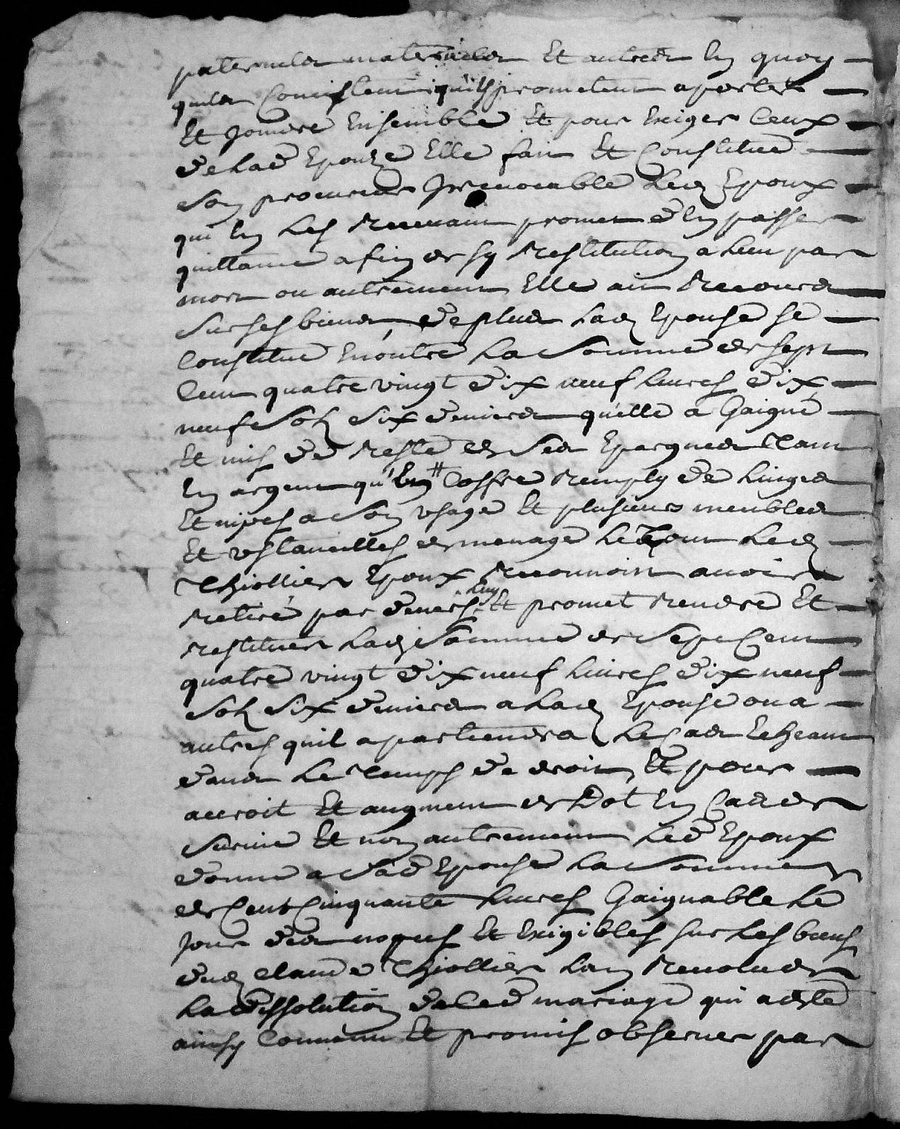 paternels maternels Et autres En quoy
quils Consistent quils prometent aporter
Et Joindre Ensemble Et pour Exiger Ceux
de lad Epouze Elle fait Et Constitue
son procureur Jrrevocable led Epoux
qui En les Recevant promet d'En passer
quittance afin de sy Restitution a lieu par
mort ou autrement Elle ait Recours
sur ses biens, de plus lad Epouse se
Constitue En outre la Somme de sept
Cent quatre vingt dix neuf livres dix
neuf sols six deniers qu'elle a Gaigné
Et mis de Reste de ses Epargnes tant
En argent qu'En Coffre Remply de linges
Et nipes a son usage Et plusieurs meubles
Et ustancilles de menage le tout led
Thiollier Epoux Reconnoist avoir
Retiré par devers luy Et promet Rendre Et
Restituer lad Somme de Sept Cent
quatre vingt dix neuf livres dix neuf
sols six deniers a lad Epouse ou a
autres quil apartiendra le Cas Echeant
dans le temps de droit, Et pour
accroit Et augment de Dot En Cas de
Survie Et non autrement led Epoux
donne a Sad Epouse la Somme
de Cent Cinquante livres Gaignable le
Jour des nopces Et Exigibles sur les biens
dud Claude Thiollier lan Revolu de
la dissolution dud mariage qui a été
ainsy Convenu Et promis observer par